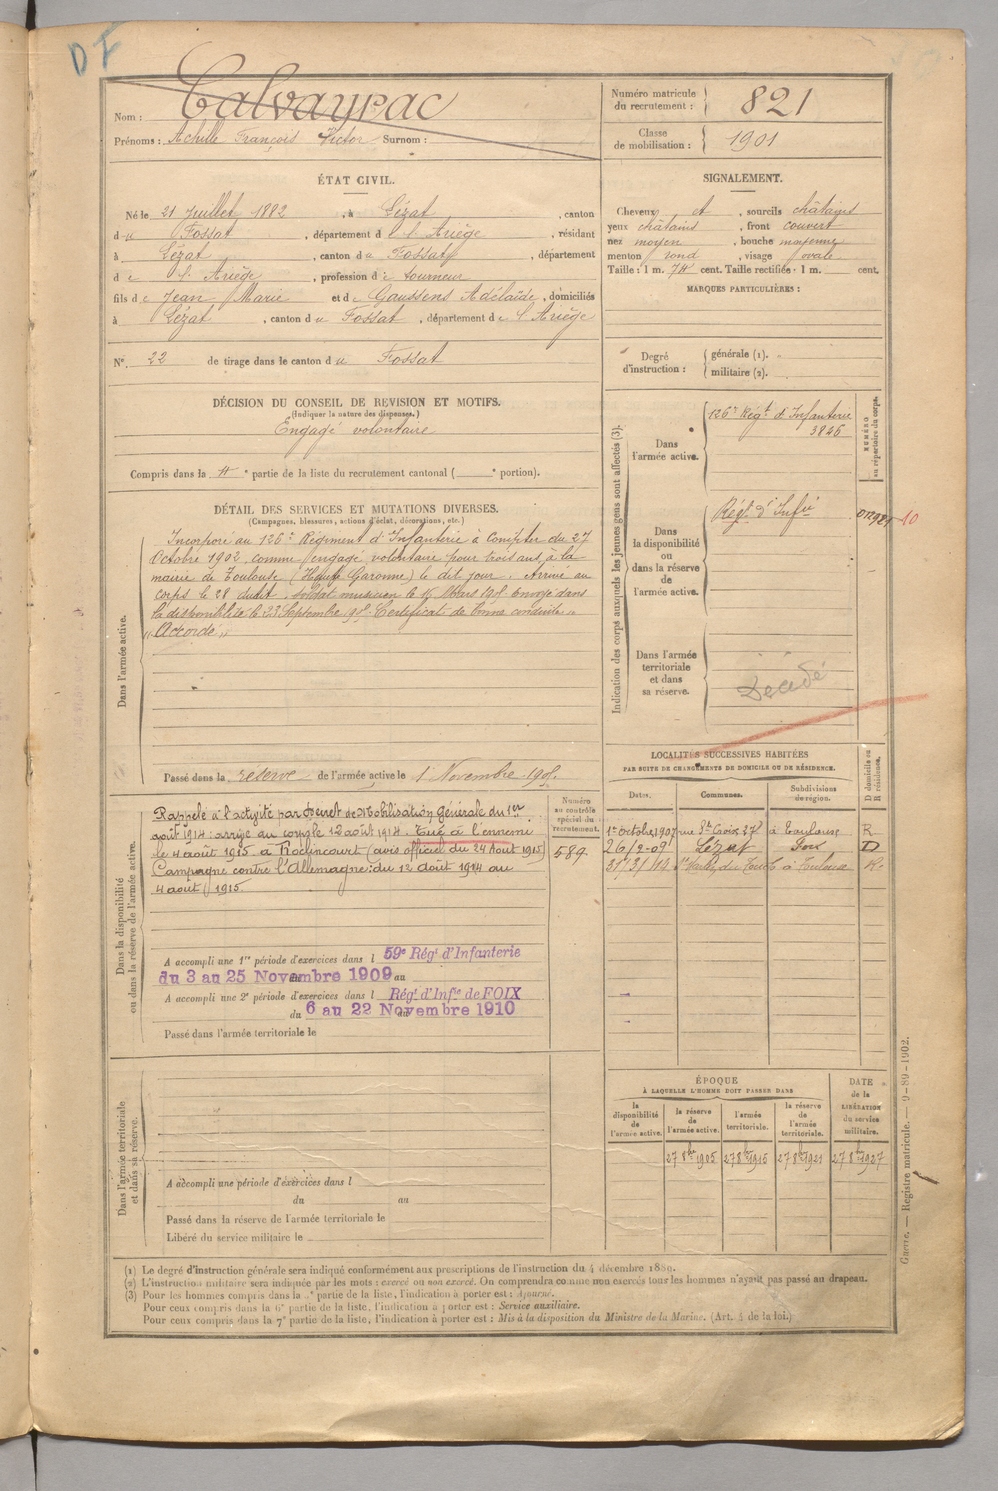 DF
Nom : Calvayrac
Prénoms : Achille François Victor Surnom :
Numéro matricule du recrutement : 821
Classe de mobilisation : 1901
ÉTAT CIVIL.
Né le 21 Juillet 1882, à Lézat, canton
du Fossat, département d l'Ariège, résidant
à Lézat, canton du Fossat, département
de l'Ariège, profession de tourneur
fils de Jean Marie et de Gaussens Adélaïde, domiciliés
à Lézat, canton du Fossat, département de l'Ariège
N° 22 de tirage dans le canton du Fossat
DÉCISION DU CONSEIL DE REVISION ET MOTIFS.
(Indiquer la nature des dispenses.)
Engagé volontaire
Compris dans la 4e partie de la liste du recrutement cantonal ( e portion).
DÉTAIL DES SERVICES ET MUTATIONS DIVERSES.
(Campagnes, blessures, actions d'éclat, décorations, etc.)
Dans l'armée active.
Incorporé au 126e Régiment d'Infanterie à compter du 27
Octobre 1902 comme engagé volontaire pour trois ans à la
mairie de Toulouse (Haute Garonne) le dit jour. Arrivé au
corps le 28 dudit. Soldat musicien le 15 Mars 190 . Envoyé dans
la disponibilité le 23 Septembre 905. Certificat de bonne conduite
"Accordé"
Passé dans la réserve de l'armée active le 1 Novembre 1905.
Dans la disponibilité ou dans la réserve de l'armée active.
Rappelé à l'activité par Décret de Mobilisation Générale du 1er
août 1914 : arrivé au corps le 12 août 1914. Tué à l'ennemi
le 4 août 1915 à Roclincourt (avis officiel du 24 Aout 1915)
Campagne contre l'Allemagne : du 12 août 1914 au
4 août 1915.
Numéro au contrôle spécial du recrutement.
589
A accompli une 1re période d'exercices dans l 59e Régt d'Infanterie
du 3 au 25 Novembre 1909 au
A accompli une 2e période d'exercices dans l Régt d'Infie de FOIX
du 6 au 22 Novembre 1910
Passé dans l'armée territoriale le
Dans l'armée territoriale et dans sa réserve.
A accompli une période d'exercices dans l
du au
Passé dans la réserve de l'armée territoriale le
Libéré du service militaire le
SIGNALEMENT.
Cheveux et, sourcils châtains
yeux châtains, front couvert
nez moyen, bouche moyenne
menton rond, visage ovale
Taille : 1 m. 74 cent. Taille rectifiée : 1 m. cent.
MARQUES PARTICULIÈRES :
Degré d'instruction : générale (1).
militaire (2).
Indication des corps auxquels les jeunes gens sont affectés (3).
NUMÉRO au répertoire du corps.
Dans l'armée active.
126e Régt d'Infanterie
3846
Dans la disponibilité ou dans la réserve de l'armée active.
Régt d'Infie
10
Dans l'armée territoriale et dans sa réserve.
Décédé
LOCALITÉS SUCCESSIVES HABITÉES
PAR SUITE DE CHANGEMENTS DE DOMICILE OU DE RÉSIDENCE.
D domicile ou R résidence.
Dates. Communes. Subdivisions de région.
1er octobre 1907 rue Ste Croix 27 à Toulouse R
26/2-09 Lézat Foix D
31/3/14 à Toulouse R
ÉPOQUE
À LAQUELLE L'HOMME DOIT PASSER DANS
DATE de la LIBÉRATION du service militaire.
la disponibilité de l'armée active.
la réserve de l'armée active.
l'armée territoriale.
la réserve de l'armée territoriale.
27 8bre 1905 27 8bre 1915 27 8bre 1921 27 8bre 1927
(1) Le degré d'instruction générale sera indiqué conformément aux prescriptions de l'instruction du 4 décembre 1889.
(2) L'instruction militaire sera indiquée par les mots : exercé ou non exercé. On comprendra comme non exercés tous les hommes n'ayant pas passé au drapeau.
(3) Pour les hommes compris dans la 5e partie de la liste, l'indication à porter est : Ajourné.
Pour ceux compris dans la 6e partie de la liste, l'indication à porter est : Service auxiliaire.
Pour ceux compris dans la 7e partie de la liste, l'indication à porter est : Mis à la disposition du Ministre de la Marine. (Art. 4 de la loi.)
Guerre. — Registre matricule. — 9-89-1902.